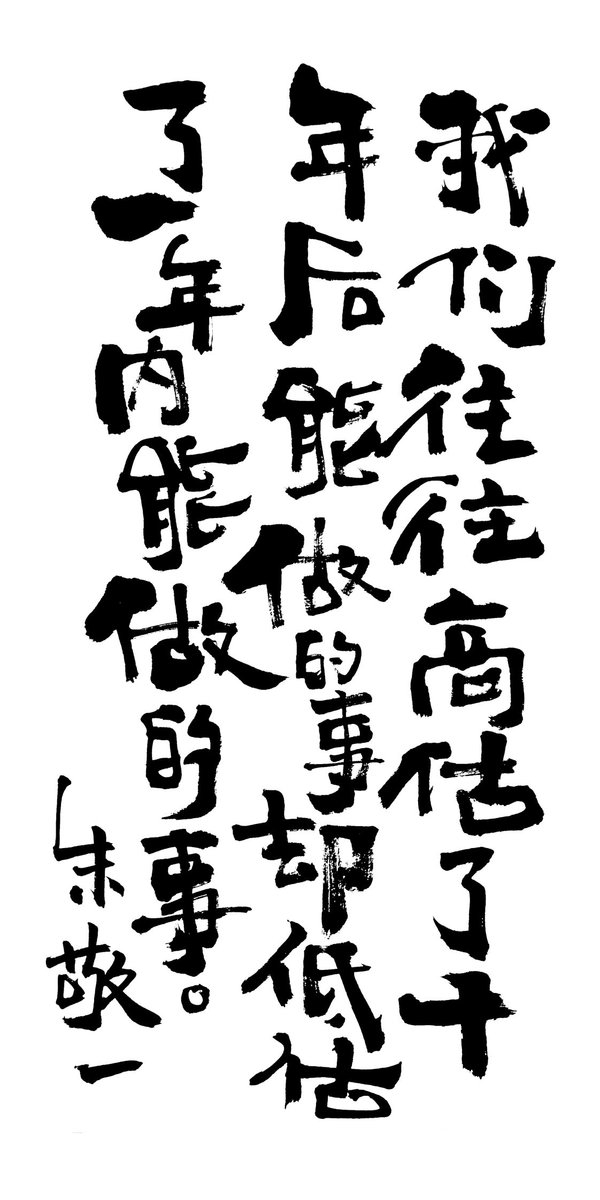 我们往往高估了十
年后能做的事却低估
了一年内能做的事。
朱敬一